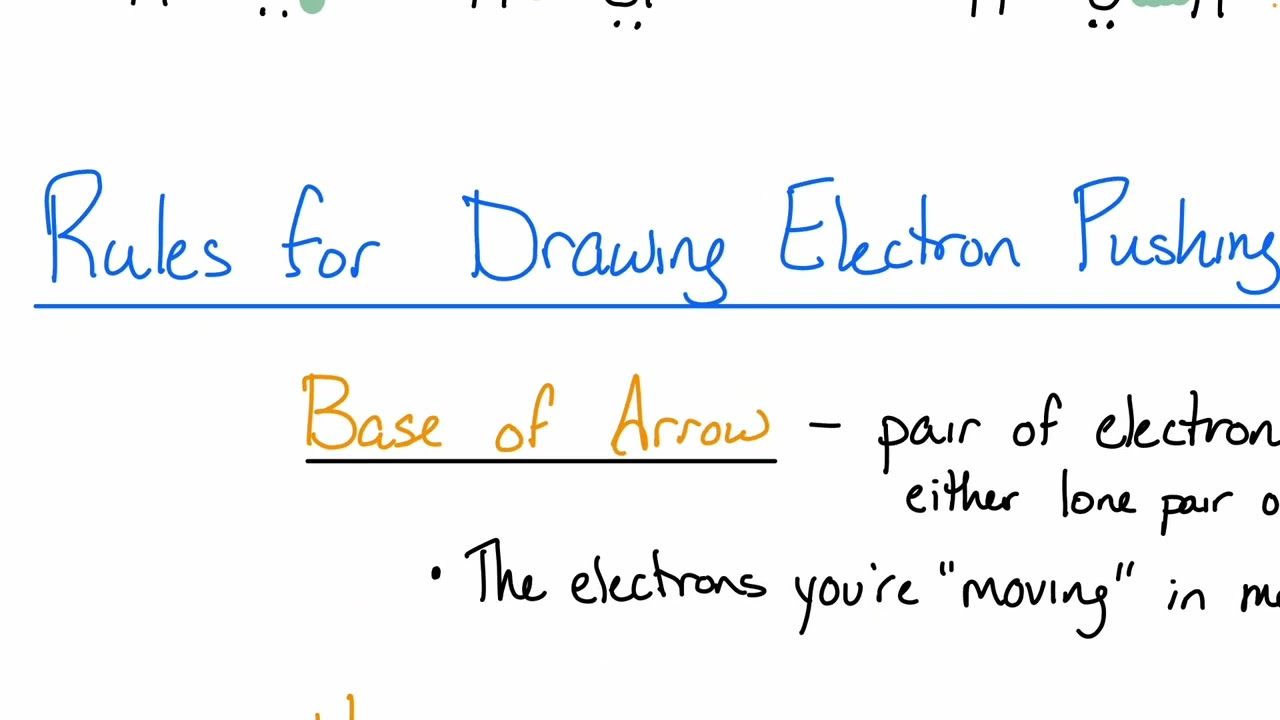 Rules for Drawing Electron Pushing
Base of Arrow – pair of electron
either lone pair o
• The electrons you're "moving" in